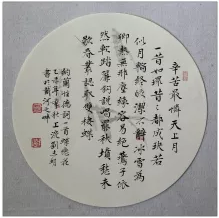 辛苦最憐天上月
一昔如環昔〻都成玦若
似月輪終皎潔不辭冰雪為
卿熱無那塵緣容易絕燕子依
然軟踏簾鉤說唱罷秋墳愁未
歇春叢認取雙棲蝶
納蘭性德詞一首蝶戀花
書於黃河之畔